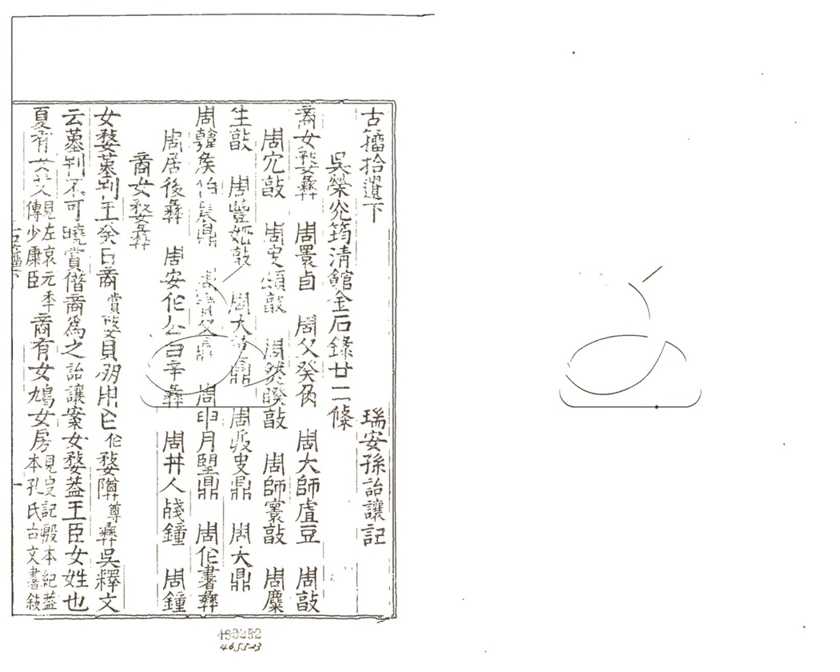 古籀拾遺下
瑞安孫詒讓記
吳榮光筠清館金石錄廿二條
商女婺彝 周睘卣 周父癸角 周大師虘豆 周敦
周冗敦 周史頌敦 周然睽敦 周師寰敦 周麋
生敦 周豐姬敦 周大鼎 周𣪘史鼎 周大鼎
周韓侯伯晨鼎 父鼎 周卯月望鼎 周作書彝
周居後彝 周安作公白辛彝 周井人殘鐘 周鐘
商女婺彝
女婺堇刊王癸日商賞婺貝朋用乍作婺隣尊彝吳釋文
云堇刊不可曉賞偕商爲之詒讓案女婺蓋王臣女姓也
夏有女艾見左哀元年傳少康臣商有女鳩女房見史記殷本紀蓋本孔氏古文書敍
古籀下
一
463252
4655-13